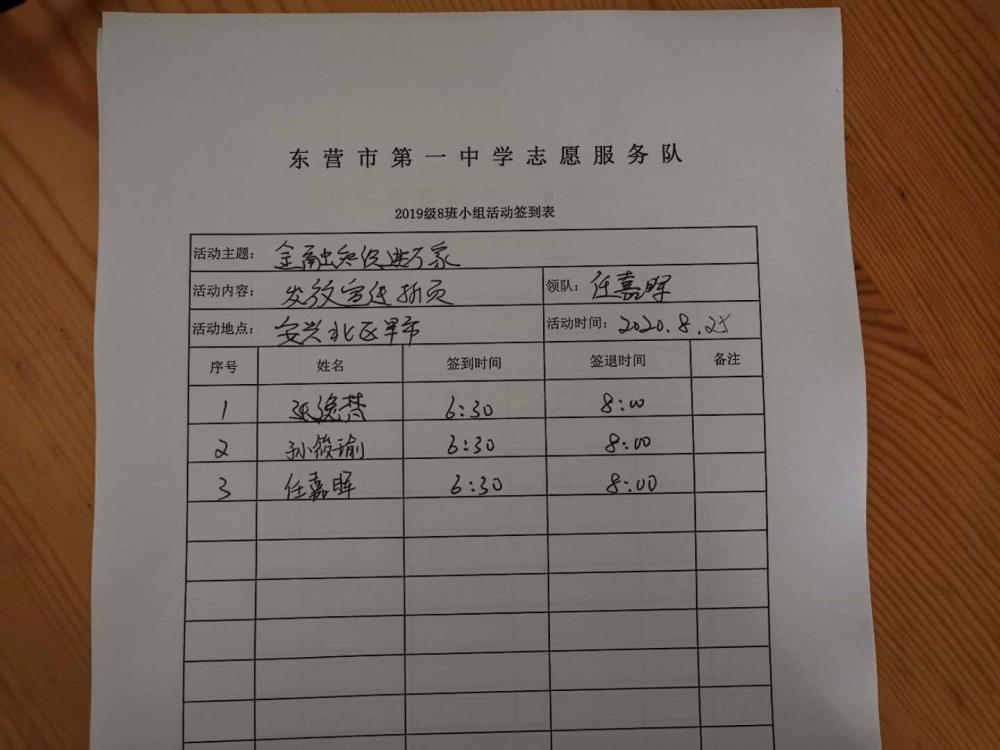 东营市第一中学志愿服务队
2019级8班小组活动签到表
活动主题: 金融知识进万家
活动内容: 发放宣传折页 领队: 任嘉晖
活动地点: 安兴北区早市 活动时间: 2020.8.25
序号 姓名 签到时间 签退时间 备注
1 张逸赞 6:30 8:00
2 孙筱瑜 6:30 8:00
3 任嘉晖 6:30 8:00